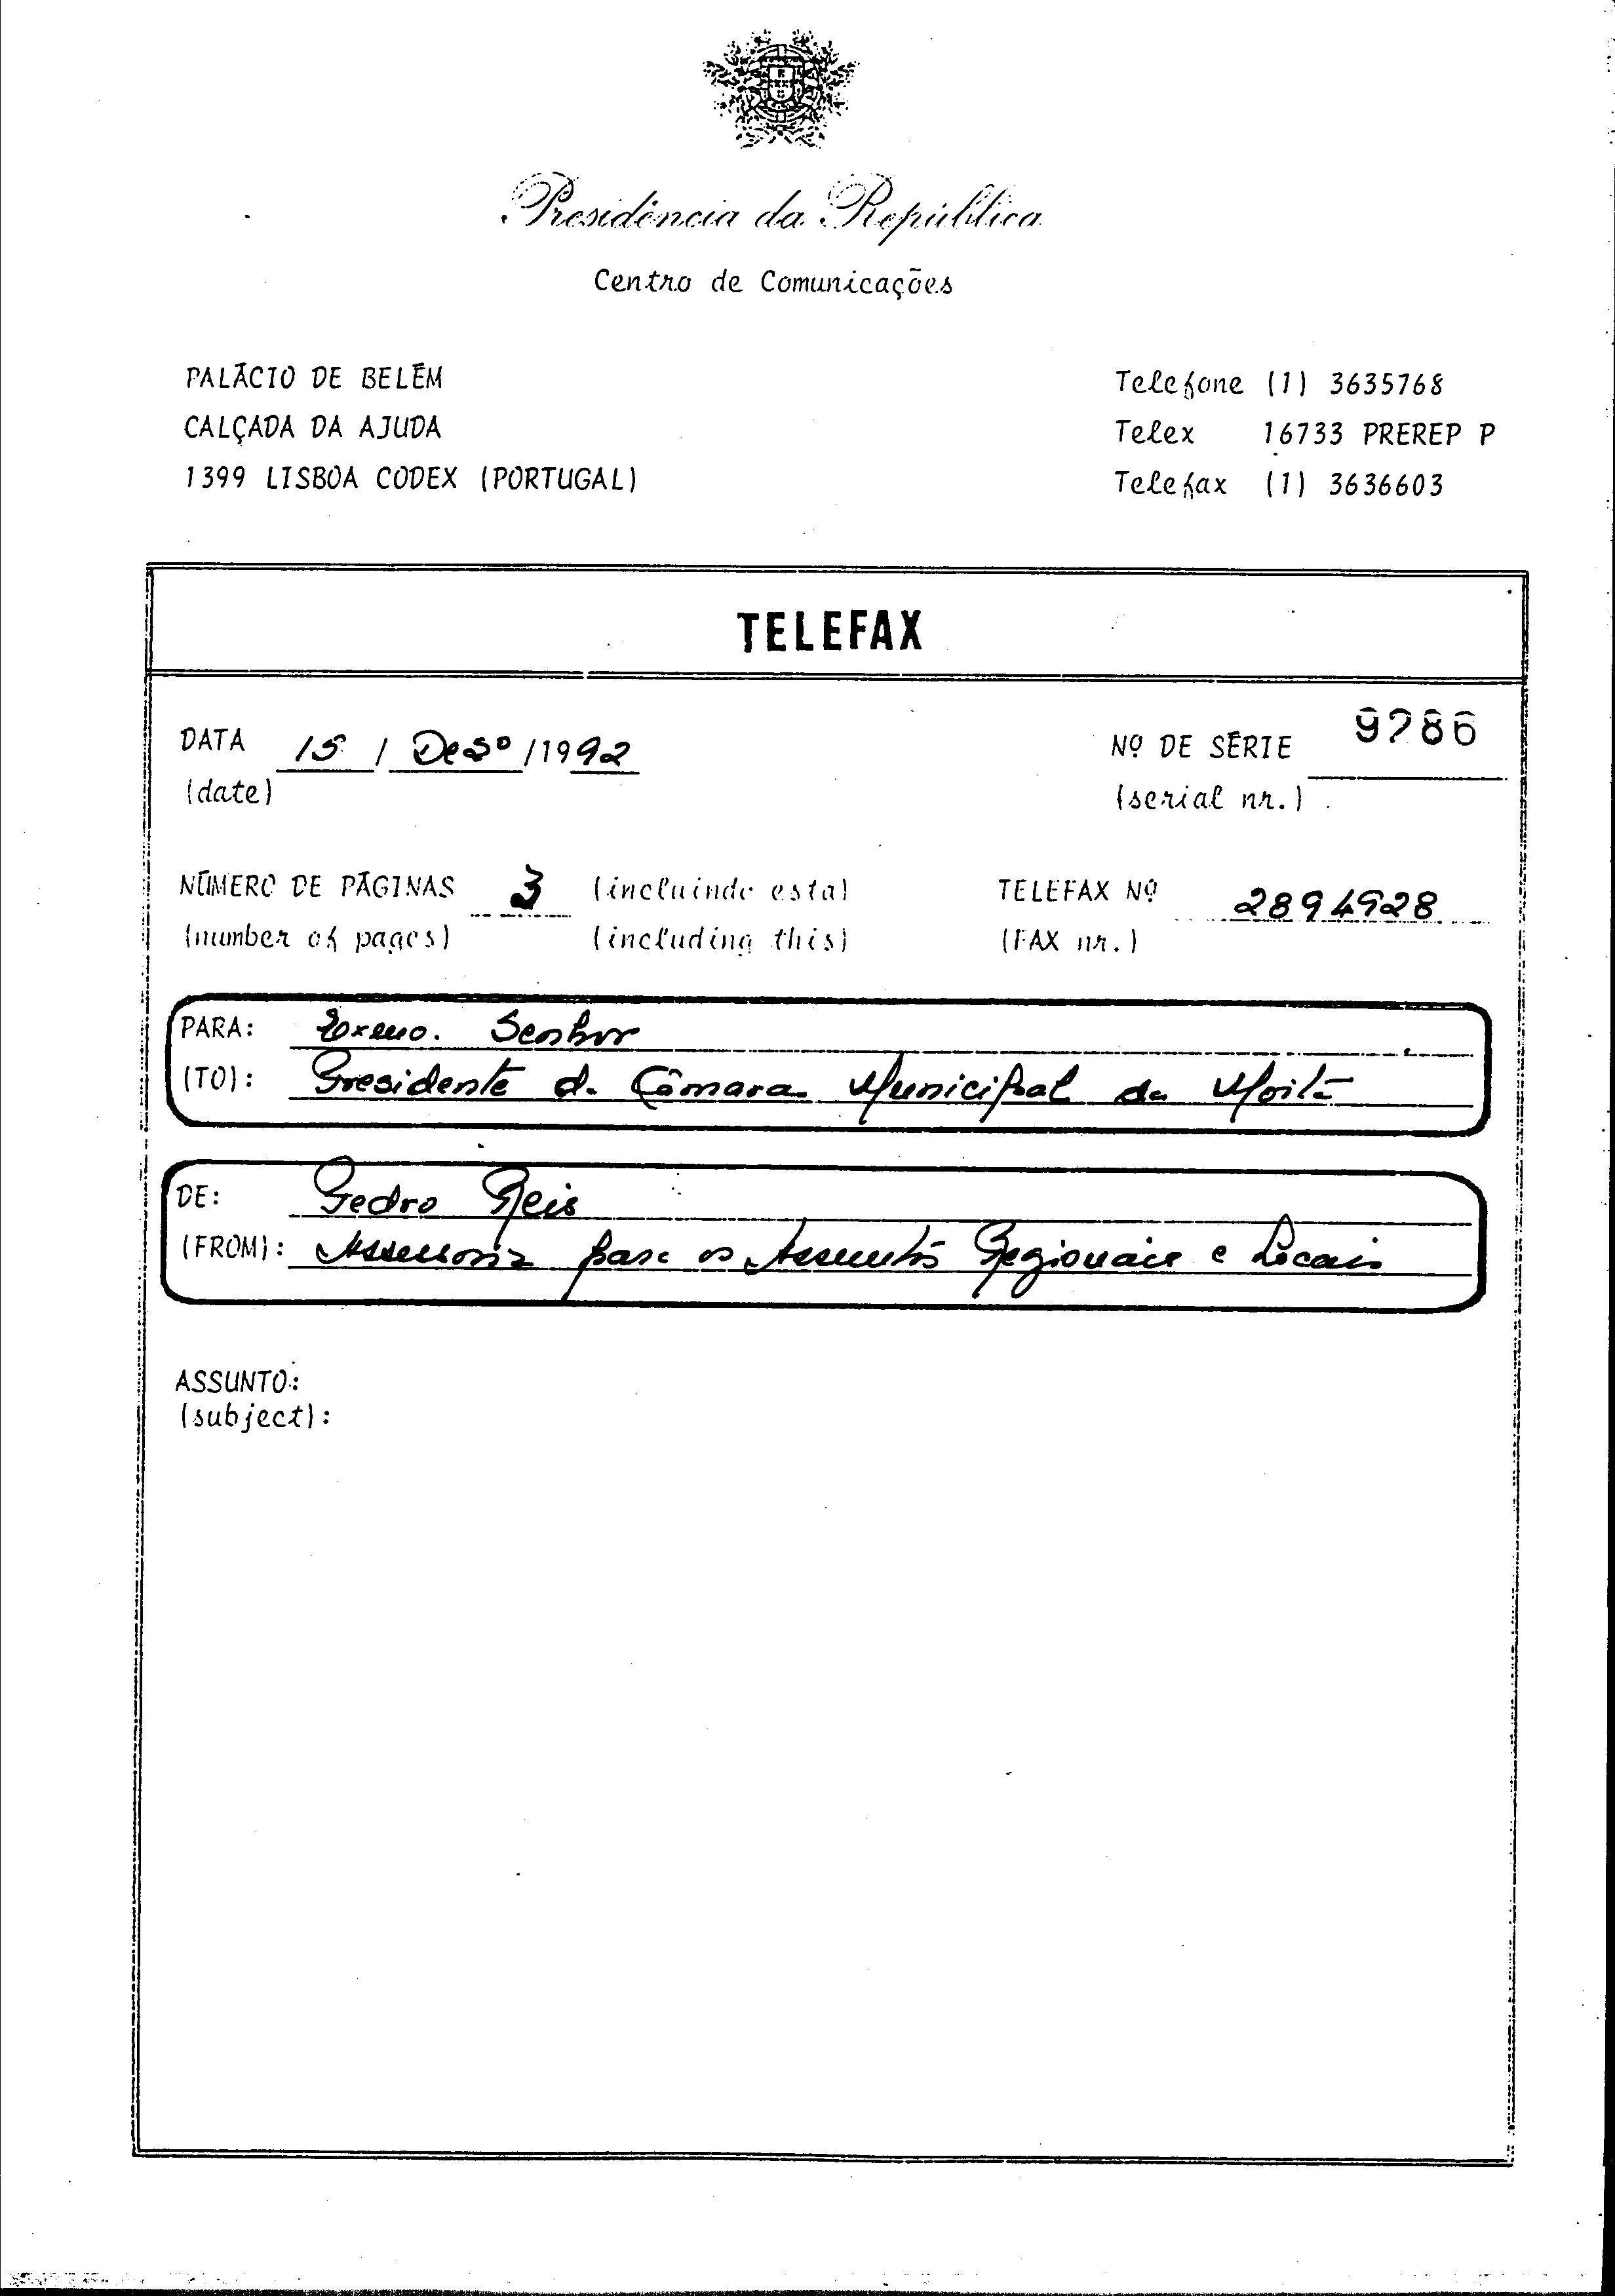 Presidência da República
Centro de Comunicações
PALÁCIO DE BELÉM
CALÇADA DA AJUDA
1399 LISBOA CODEX (PORTUGAL)
Telefone (1) 3635768
Telex 16733 PREREP P
Telefax (1) 3636603
TELEFAX
DATA 15 / Dezº /1992
(date)
Nº DE SÉRIE 9286
(serial nr.)
NÚMERO DE PÁGINAS 3 (incluindo esta)
(number of pages) (including this)
TELEFAX Nº 2894928
(FAX nr.)
PARA: Exmo. Senhor
(TO): Presidente da Câmara Municipal da Moita
DE: Pedro Reis
(FROM): Assessoria para os Assuntos Regionais e Locais
ASSUNTO:
(subject):